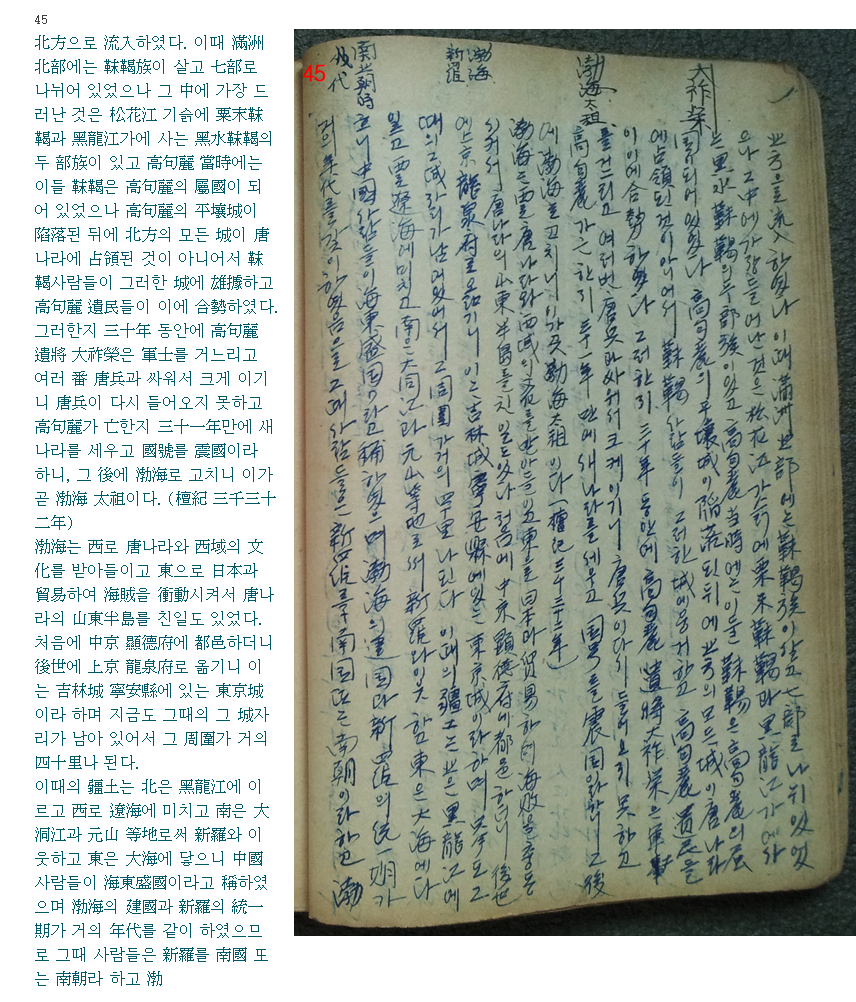 45
北方으로 流入하였다. 이때 滿洲
北部에는 靺鞨族이 살고 七部로
나뉘어 있었으나 그 中에 가장 드
러난 것은 松花江 기슭에 粟末靺
鞨과 黑龍江가에 사는 黑水靺鞨의
두 部族이 있고 高句麗 當時에는
이들 靺鞨은 高句麗의 屬國이 되
어 있었으나 高句麗의 平壤城이
陷落된 뒤에 北方의 모든 城이 唐
나라에 占領된 것이 아니어서 靺
鞨사람들이 그러한 城에 雄據하고
高句麗 遺民들이 이에 合勢하였다.
그러한지 三十年 동안에 高句麗
遺將 大祚榮은 軍士를 거느리고
여러 番 唐兵과 싸워서 크게 이기
니 唐兵이 다시 들어오지 못하고
高句麗가 亡한지 三十一年만에 새
나라를 세우고 國號를 震國이라
하니, 그 後에 渤海로 고치니 이가
곧 渤海 太祖이다. (檀紀 三千三十
二年)
渤海는 西로 唐나라와 西域의 文
化를 받아들이고 東으로 日本과
貿易하여 海賊을 衝動시켜서 唐나
라의 山東半島를 친일도 있었다.
처음에 中京 顯德府에 都邑하더니
後世에 上京 龍泉府로 옮기니 이
는 吉林城 寧安縣에 있는 東京城
이라 하며 지금도 그때의 그 城자
리가 남아 있어서 그 周圍가 거의
四十里나 된다.
이때의 疆土는 北은 黑龍江에 이
르고 西로 遼海에 미치고 南은 大
洞江과 元山 等地로써 新羅와 이
웃하고 東은 大海에 닿으니 中國
사람들이 海東盛國이라고 稱하였
으며 渤海의 建國과 新羅의 統一
期가 거의 年代를 같이 하였으므
로 그때 사람들은 新羅를 南國 또
는 南朝라 하고 渤
45
大祚榮
渤海太祖
渤海
新羅
南北朝時
代
北方으로 流入하였다 이때 滿洲北部에는 靺鞨族이 살고 七部로 나뉘 있었
으나 그中에 가장 들어난 것은 松花江 가슭에 粟末靺鞨과 黑龍江가에 사
는 黑水靺鞨의 두 部族이 있고 高句麗 当時에는 이들 靺鞨은 高句麗의 屬
国이 되어 있었으나 高句麗의 平壤城이 陷落된 뒤에 北方의 모든 城이 唐나라
에 占領된 것이 아니어서 靺鞨사람들이 그러한 城에 웅거하고 高句麗 遺民들
이 이에 合勢하였다 그러한지 三十年 동안에 高句麗 遺將 大祚榮은 軍士
를 거느리고 여러번 唐兵과 싸워서 크게 이기니 唐兵이 다시 들어오지 못하고
高句麗가 亡한지 三十一年만에 새나라를 세우고 国号를 震国이라하니 그後
에 渤海로 고치니 이가 곧 渤海太祖이다 (檀紀 三千三十二年)
渤海는 西로 唐나라와 西域의 文化를 받아들이고 東으로 日本과 貿易하여 海賊을 충동
시켜서 唐나라의 山東半島를 친 일도 있다 처음에 中京 顯德府에 都邑하더니 後世
에 上京 龍泉府로 옮기니 이는 吉林城 寧安縣에 있는 東京城이라하며 지금도 그
때의 그 城자리가 남어있어서 그 周圍가 거의 四十里나 된다 이때의 疆土는 北은 黑龍江에
일고 西로 遼海에 미치고 南은 大同江과 元山等地로써 新羅와 이웃함 東은 大海에 다
흐니 中國사람들이 海東盛国이라고 稱하였으며 渤海의 建国과 新羅의 統一期가
거의 年代를 같이 하였음으로 그때 사람들은 新羅를 南国 또는 南朝이라하고 渤